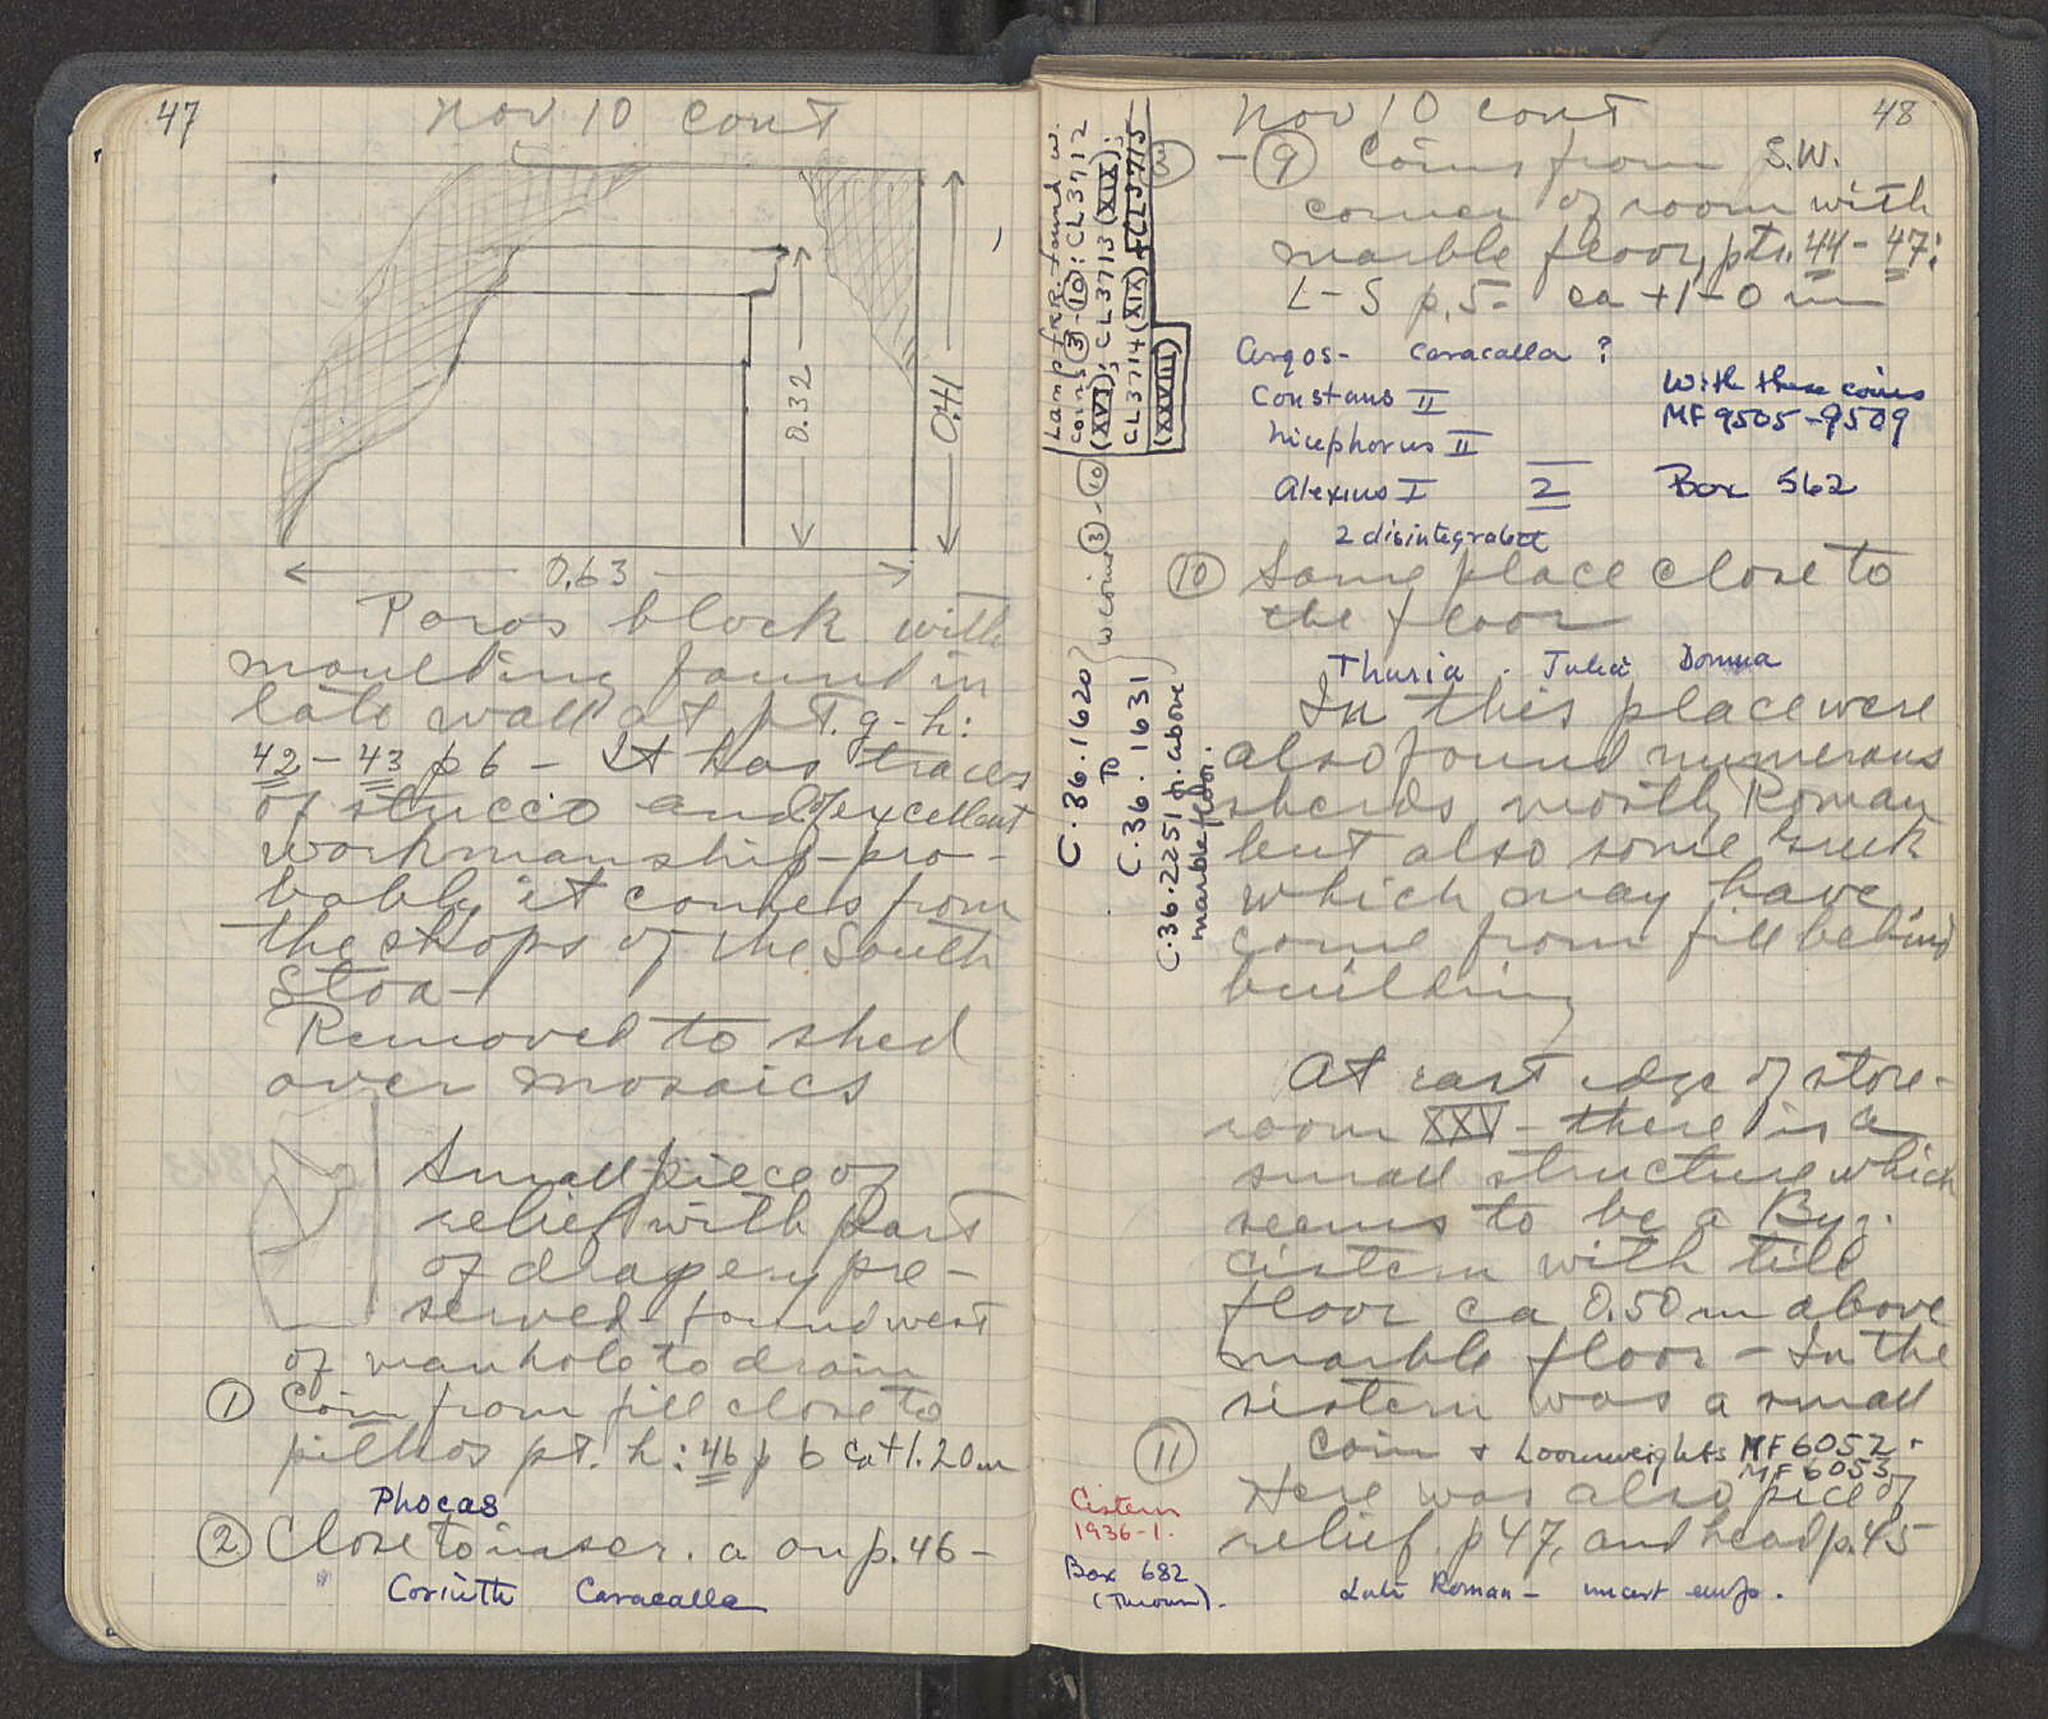 47
Nov 10 cont
0.32
0.41
0.63
Poros block with
moulding found in
late wall at pT. g-h:
42-43 p 6 - It has traces
of stucco and of excellent
workmanship - pro-
bably it comes from
the shops of the South
Stoa -
Removed to shed
over mosaics
Small piece of
relief with part
of drapery pre-
served - found west
of manhole to drain
① Coin from fill close to
pithos pt. h:46 p 6 ca +1.20m
Phocas
② Close to inscr. a on p.46 -
Corinth Caracalla
48
Nov 10 cont
③ - ⑨ Coins from S.W.
corner of room with
marble floor, pts. 44-47:
L-S p.5 - ca +1-0 m
Argos - Caracalla ?
Constans II
With these coins
MF 9505-9509
Nicephorus II
Alexius I 2 Box 562
2 disintegrated
⑩ Same place close to
the floor
Thuria. Julia Domna
In this place were
also found numerous
sherds, mostly Roman
but also some Greek
which may have
come from fill behind
building
At east edge of store-
room XXV - there is a
small structure which
seems to be a Byz.
cistern with tile
floor ca 0.50m above
marble floor - In the
sistern was a small
⑪ coin + Loomweights MF6052 +
MF6053
Here was also piece of
relief p 47, and head p.45
Late Roman - uncert emp.
Cistern
1936-1.
Box 682
(Thrown).
Lamp frr. found w.
coins ③-⑩: CL3712
(XVI); CL3713 (XIX);
CL3714 (XIX) + CL3715
(XXVIII)
C.36.1620
To
C.36.1631
w coins ③-⑩
C.36.2251 fr. above
marble floor.